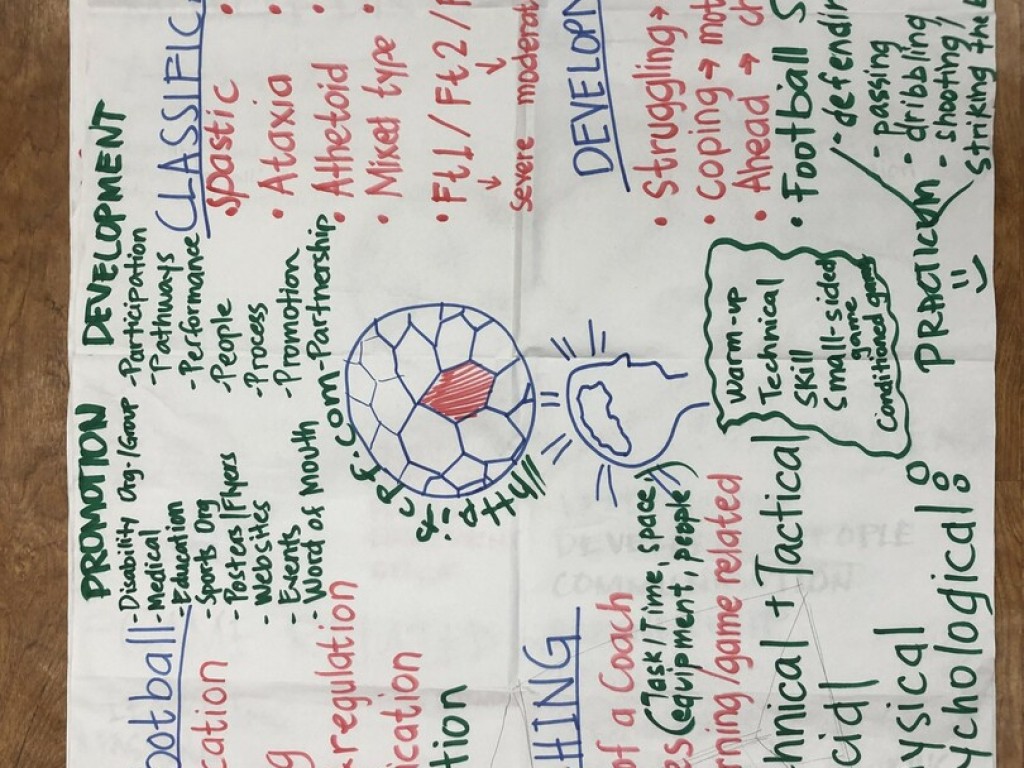 PROMOTION
-Disability Org-/Group
-Medical
-Education
-Sports Org
-Posters/Flyers
-Websites
-Events
-Word of Mouth
DEVELOPMENT
-Participation
-Pathways
-Performance
-People
-Process
-Promotion
-Partnership
CLASSIFIC
•Spastic
•Ataxia
•Athetoid
•Mixed type
•Ft1/Ft2/
severe moderat
ootball
cation
g
regulation
ication
tion
cpf.com
DEVELOPN
•Struggling→
•Coping→mot
•Ahead→ch
•Football S
-defendin
-passing
•dribbling
•shooting/
striking the b
PRACTICUM
HING
of a Coach
es (Task/Time, space,
equipment, people)
rning/game related
hnical + Tactical
cial
ysical
ychological
Warm-up
Technical
Skill
Small-sided
game
Conditioned game